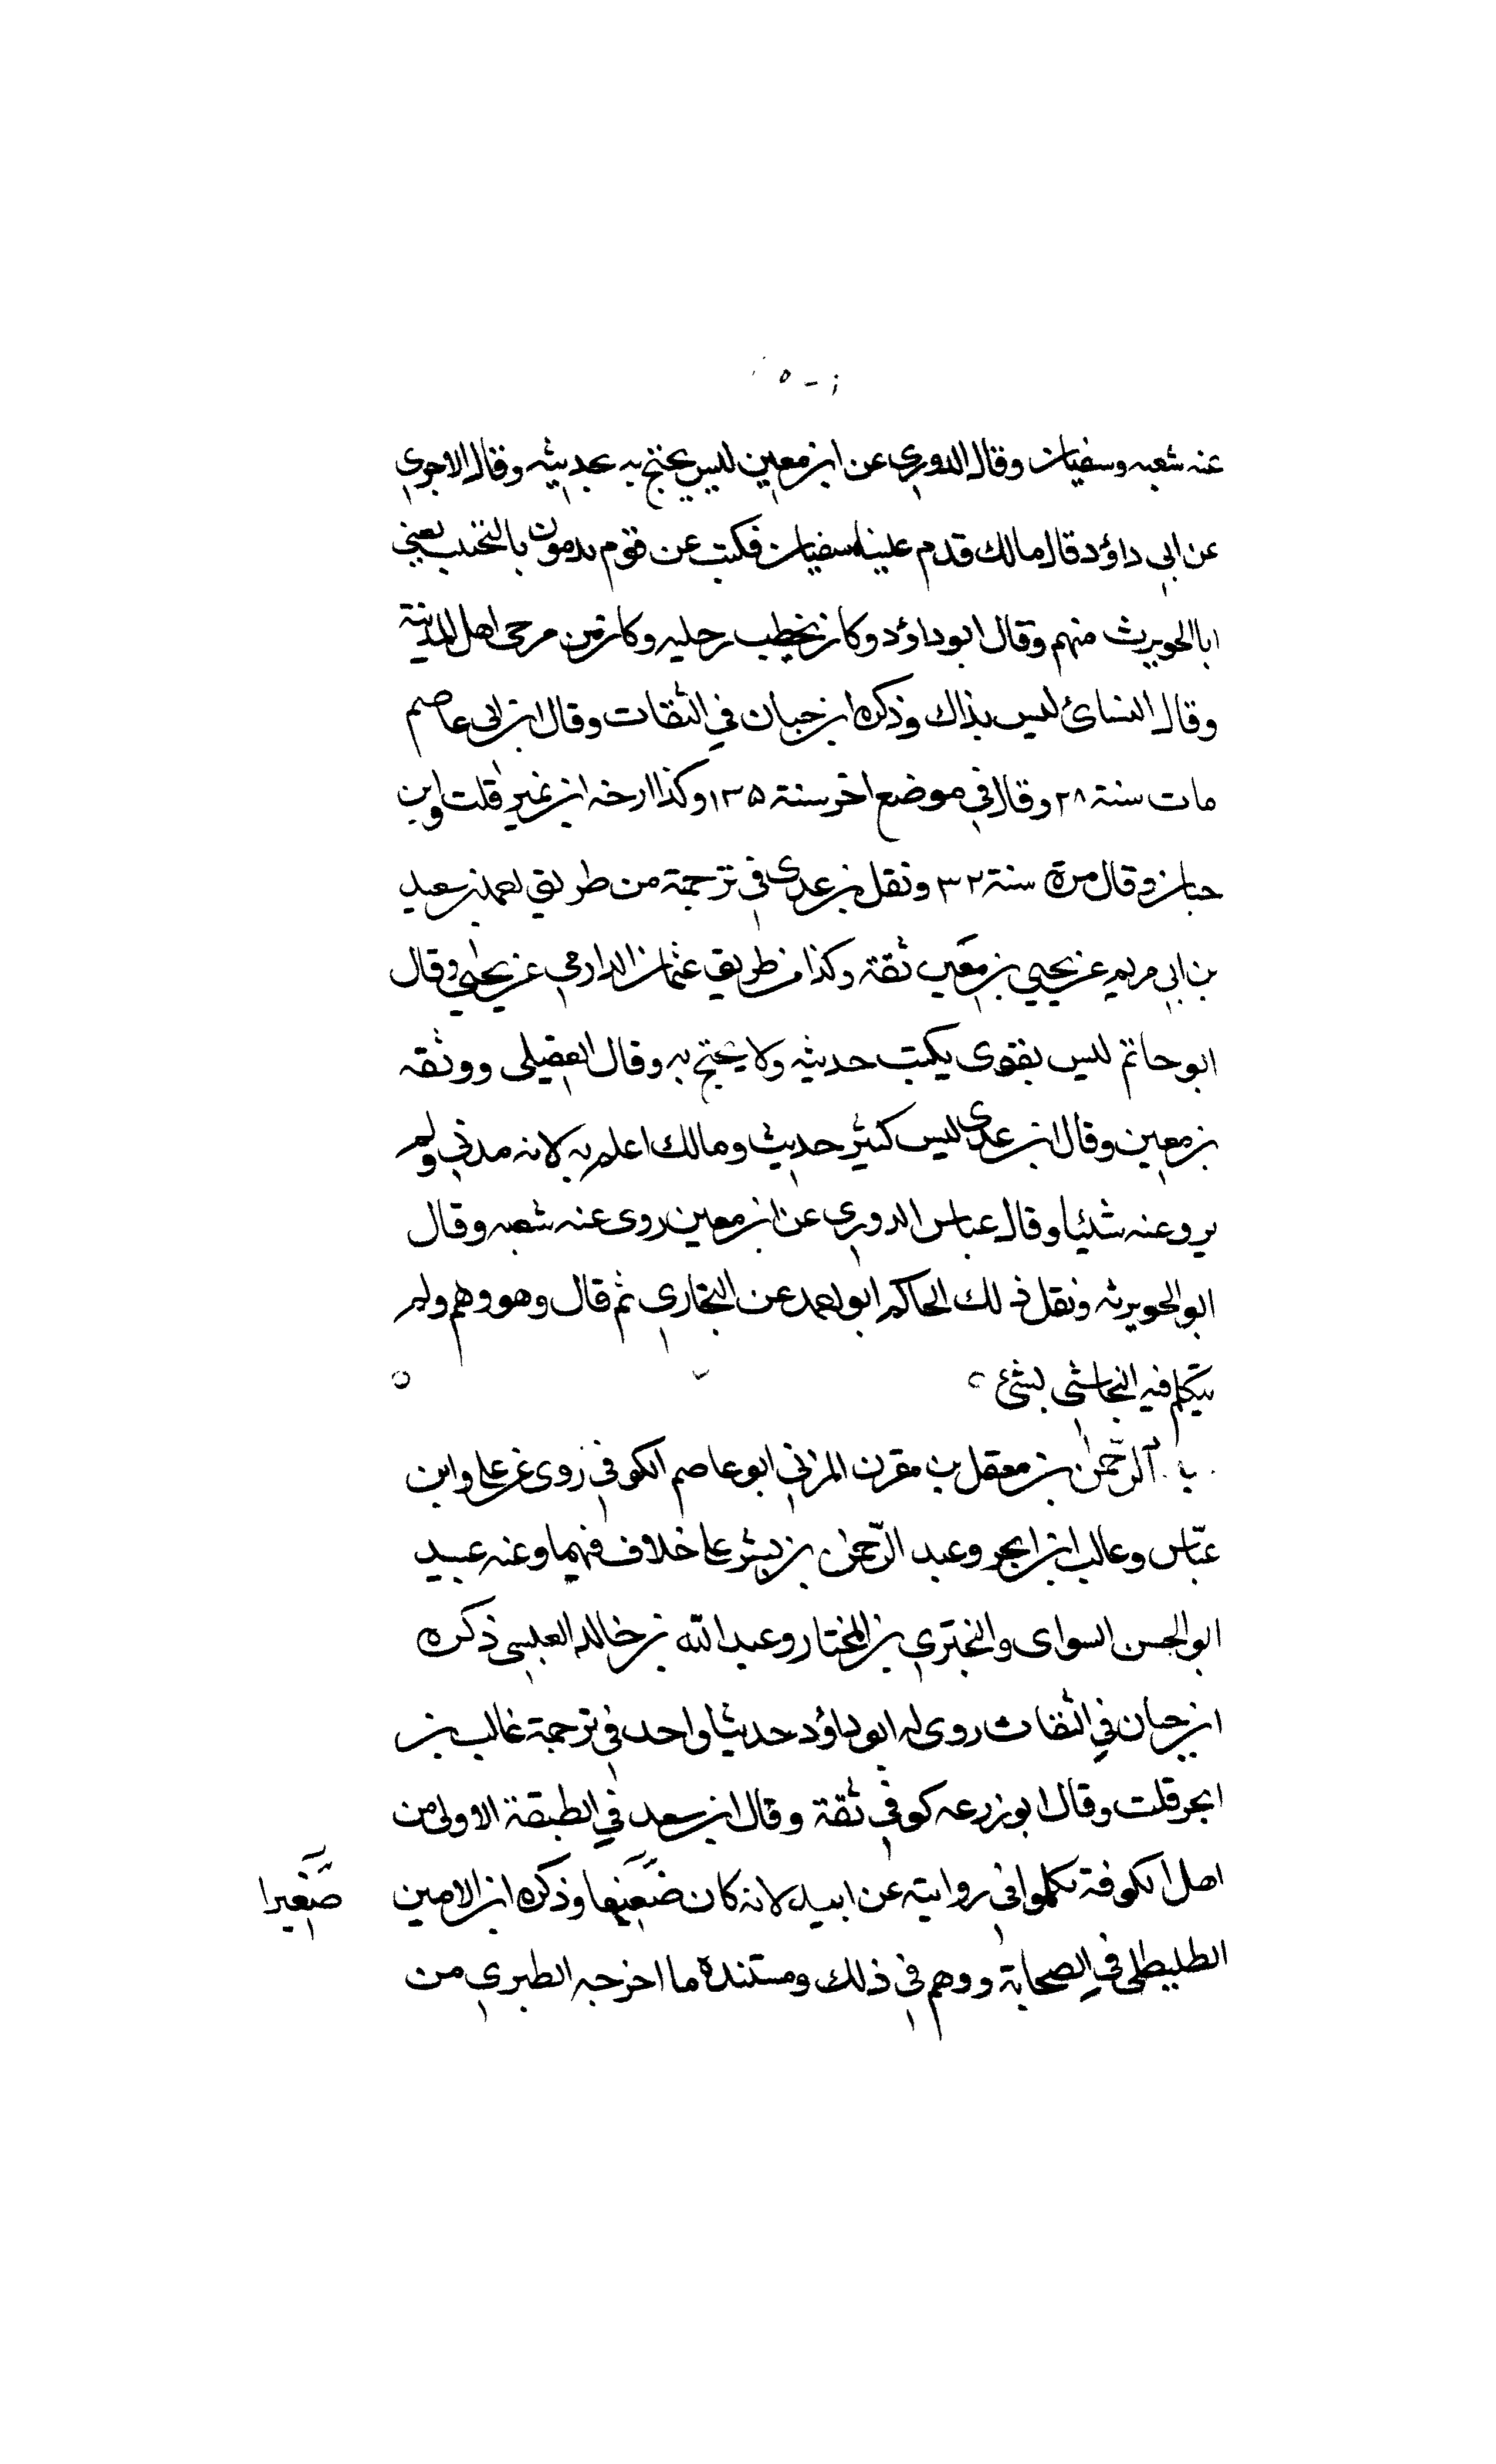 عنه شعبه وسفيان وقال الدوري عن ابن معين ليس يحتج به بحديثه وقال الاجري
عن ابي داؤد قال مالك قدم علينا سفيان فكتب عن قوم يدمون بالتخنيث يعني
ابا الحويرث منهم وقال ابو داؤد وكان يخطب رجليه وكان من مرجى اهل المدينة
وقال النسائ ليس بذاك وذكره ابن حبان في الثقات وقال ابن ابي عاصم
مات سنة ٢٨ وقال في موضع اخر سنة ١٣٥ وكذا ارخه ابن نمير قلت وابن
حبان وقال مرة سنة ٣٢ ونقل بن عدى في ترجمة من طريق احمد بن سعيد
بن ابي مريم عن يحيي بن معين ثقة وكذا من طريق عثمان الدارمي عن يحيي وقال
ابو حاتم ليس بقوى يكتب حديثه ولا يحتج به وقال العقيلى ووثقه
بن معين وقال ابن عدى ليس كثير حديث ومالك اعلم به لانه مدني ولم
يرو عنه شئيا وقال عباس الدوري عن ابن معين روى عنه شعبه وقال
ابو الحويرثه ونقل ذلك الحاكم ابو احمد عن البخاري ثم قال وهو وهم ولم
يتكلم فيه النجاشي بشئ
الرحمن بن معقل بن مقرن المزني ابو عاصم الكوفي روى عن علي وابن
عباس وغالب ابن ابجر وعبد الرحمن بن بشر عا خلاف فيهما وعنه عبيد
ابو الحسن السواى والبختري بن المختار وعبد الله بن خالد العبسي ذكره
ابن حبان في الثقات روى له ابو داؤد حديثا واحد في ترجمة غالب بن
ابجر قلت وقال ابو زرعه كوفي ثقة وقال ابن سعد في الطبقة الاولى من
اهل الكوفة تكلموا في روايته عن ابيه لانه كان ضعيفا وذكره ابن الامين
صغيرا
الطليطلي في الصحابة ووهم في ذلك ومستنده ما اخرجه الطبري من